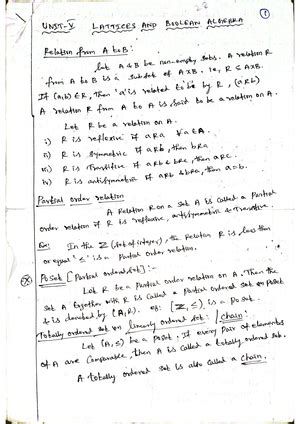 UNIT-V LATTICES AND BOOLEAN ALGEBRA
①
Relation from A to B:
Let A & B be non-empty sets. A relation R
from A to B is a subset of A×B. ie, R ⊆ A×B.
If (a,b) ∈ R, then 'a' is related to b by R, (aRb)
A relation R from A to A is said to be a relation on A.
Let R be a relation on A.
i) R is reflexive if aRa ∀ a∈A.
ii) R is Symmetric if aRb, then bRa
iii) R is Transitive if aRb & bRc, then aRc.
iv) R is antisymmetric if aRb & bRa, then a=b.
Partial order relation
A Relation R on a set A is called a Partial
order relation if R is reflexive, antisymmetric & Transitive.
Ex: In the Z (set of integers), the Relation R is less than
or equal '≤' is a Partial order relation.
Poset [Partial ordered set] :-
Let R be a Partial order relation on A. Then the
set A together with R is called a Partial ordered set or poset
& is denoted by (A,R). eg: (Z, ≤) is a Poset.
Totally ordered set or Linearly ordered set: / Chain:
Let (A, ≤) be a poset. If every Pair of elements
of A are Comparable, then A is called a totally ordered set.
A totally ordered set is also called a Chain.